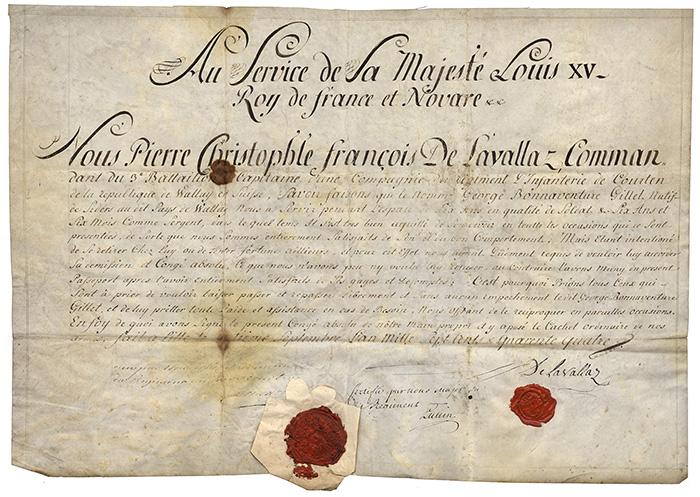 Au Service de Sa Majesté Louis XV
Roy de france et Novare
Nous Pierre Christophle françois De Lavallaz, Comman
dant du 3e Bataillon Capitaine d'une Compagnie du Regiment d'Infanterie de Courten
de la republique de Wallay en Suise, Savoir faisons que le nommé George Bonnaventure Gillet, Natif
de au dit Pays de Wallay Nous a Servi pendant l'espace Six Ans en qualité de Soldat & Six Ans et
Six Mois Comme Sergent, dans lequel tems Il s'est tres bien aquitté de Son devoir en toutes les occasions qui se sont
presentées, de Sorte que nous Sommes entierement Satisfaits de Son Comportement; Mais étant intentionné
de Se retirer Chez Luy ou de fortune ailleurs, et pour cet effet nous auroit requis de vouloir luy accorder
Sa demission et Congé absolu, ce que nous n'avons peu ny voulu luy refuser, au Contraire l'avons Muny du present
Passeport apres l'avoir entierement Satisfait de Ses gages et decomptes; C'est pourquoi Prions tous Ceux qui
Sont à prier de vouloir laisser passer et repasser Sûrement et Sans aucun empechement ledit George Bonnaventure
Gillet, et de luy prêter toute l'aide et assistance en cas de Besoin, Nous offrant de le reciproquer en pareilles occasions.
En foy de quoi avons Signé le present Congé absolu de nôtre Main propre et y aposé le Cachet ordinaire de nos
fait à Lille Septembre l'an Mille Sept Cent & Quarente Quatre
De Lavallaz
Certifié par nous Major du
Regiment